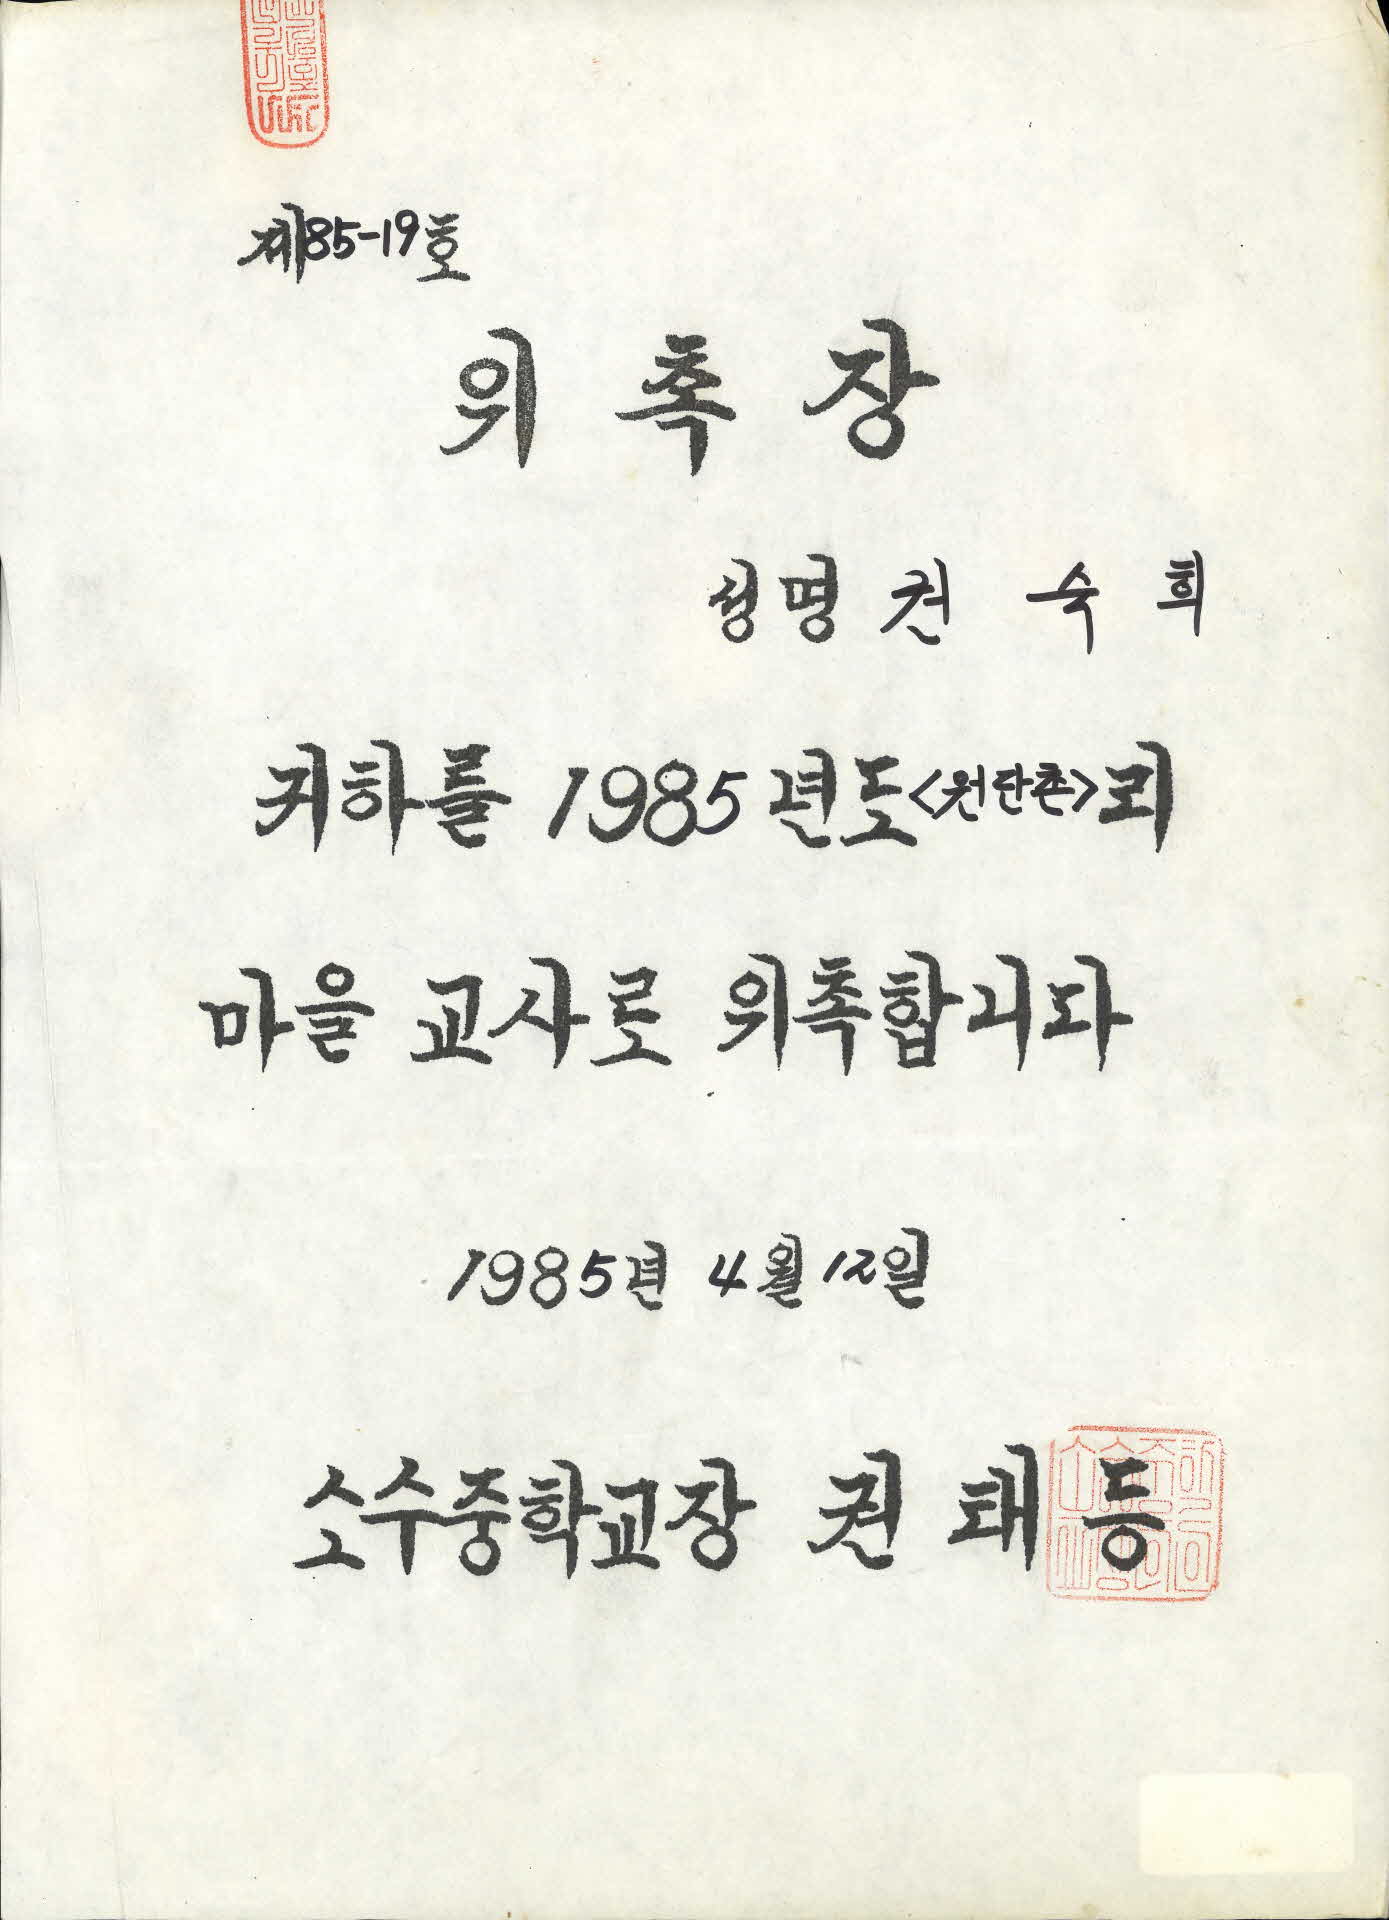 제85-19호
위촉장
성명 권숙희
귀하를 1985년도<원단촌>뫼
마을 교사로 위촉합니다
1985년 4월 12일
소수중학교장 권태등